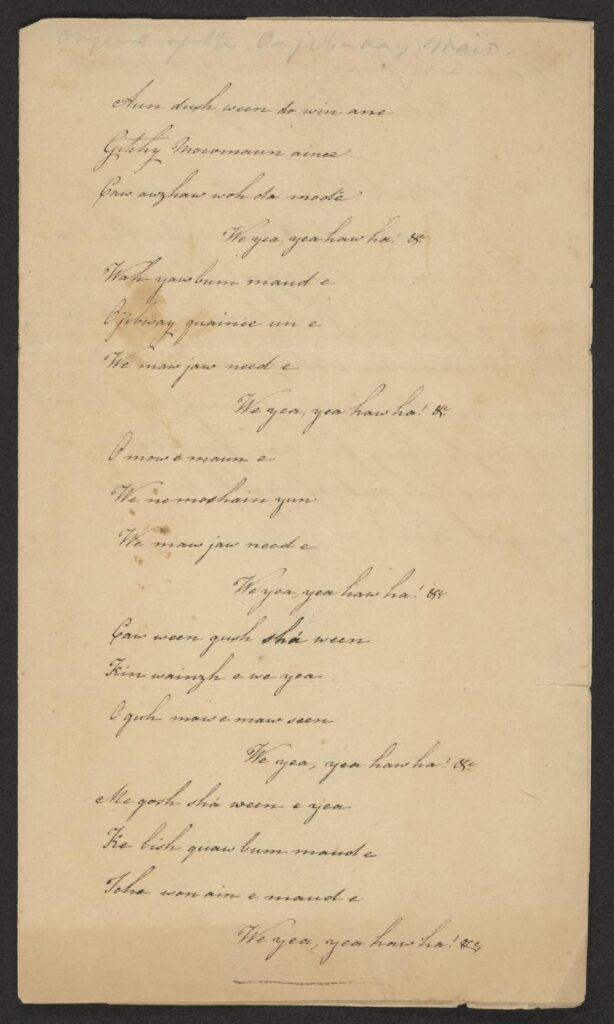 Original of the O,jibway Maid.
Aun dush ween do win ane
Gitchy Mocomaun aince
Caw awzhaw woh da modé
We yea, yea haw ha! &c.
Wah yaw bum maud e
Ojibway quaince un e
We maw jaw need e
We yea, yea haw ha! &c.
O mow e maun e
We nemoshain yun
We maw jaw need e
We yea, yea haw ha! &c.
Caw ween gush shá ween
Kin wainzh e we yea
O gush mow e maw seen
We yea, yea haw ha! &c.
Me gosh shá ween e yea
Ke bish quaw bum maud e
Tche won ain e maud e
We yea, yea haw ha! &c.